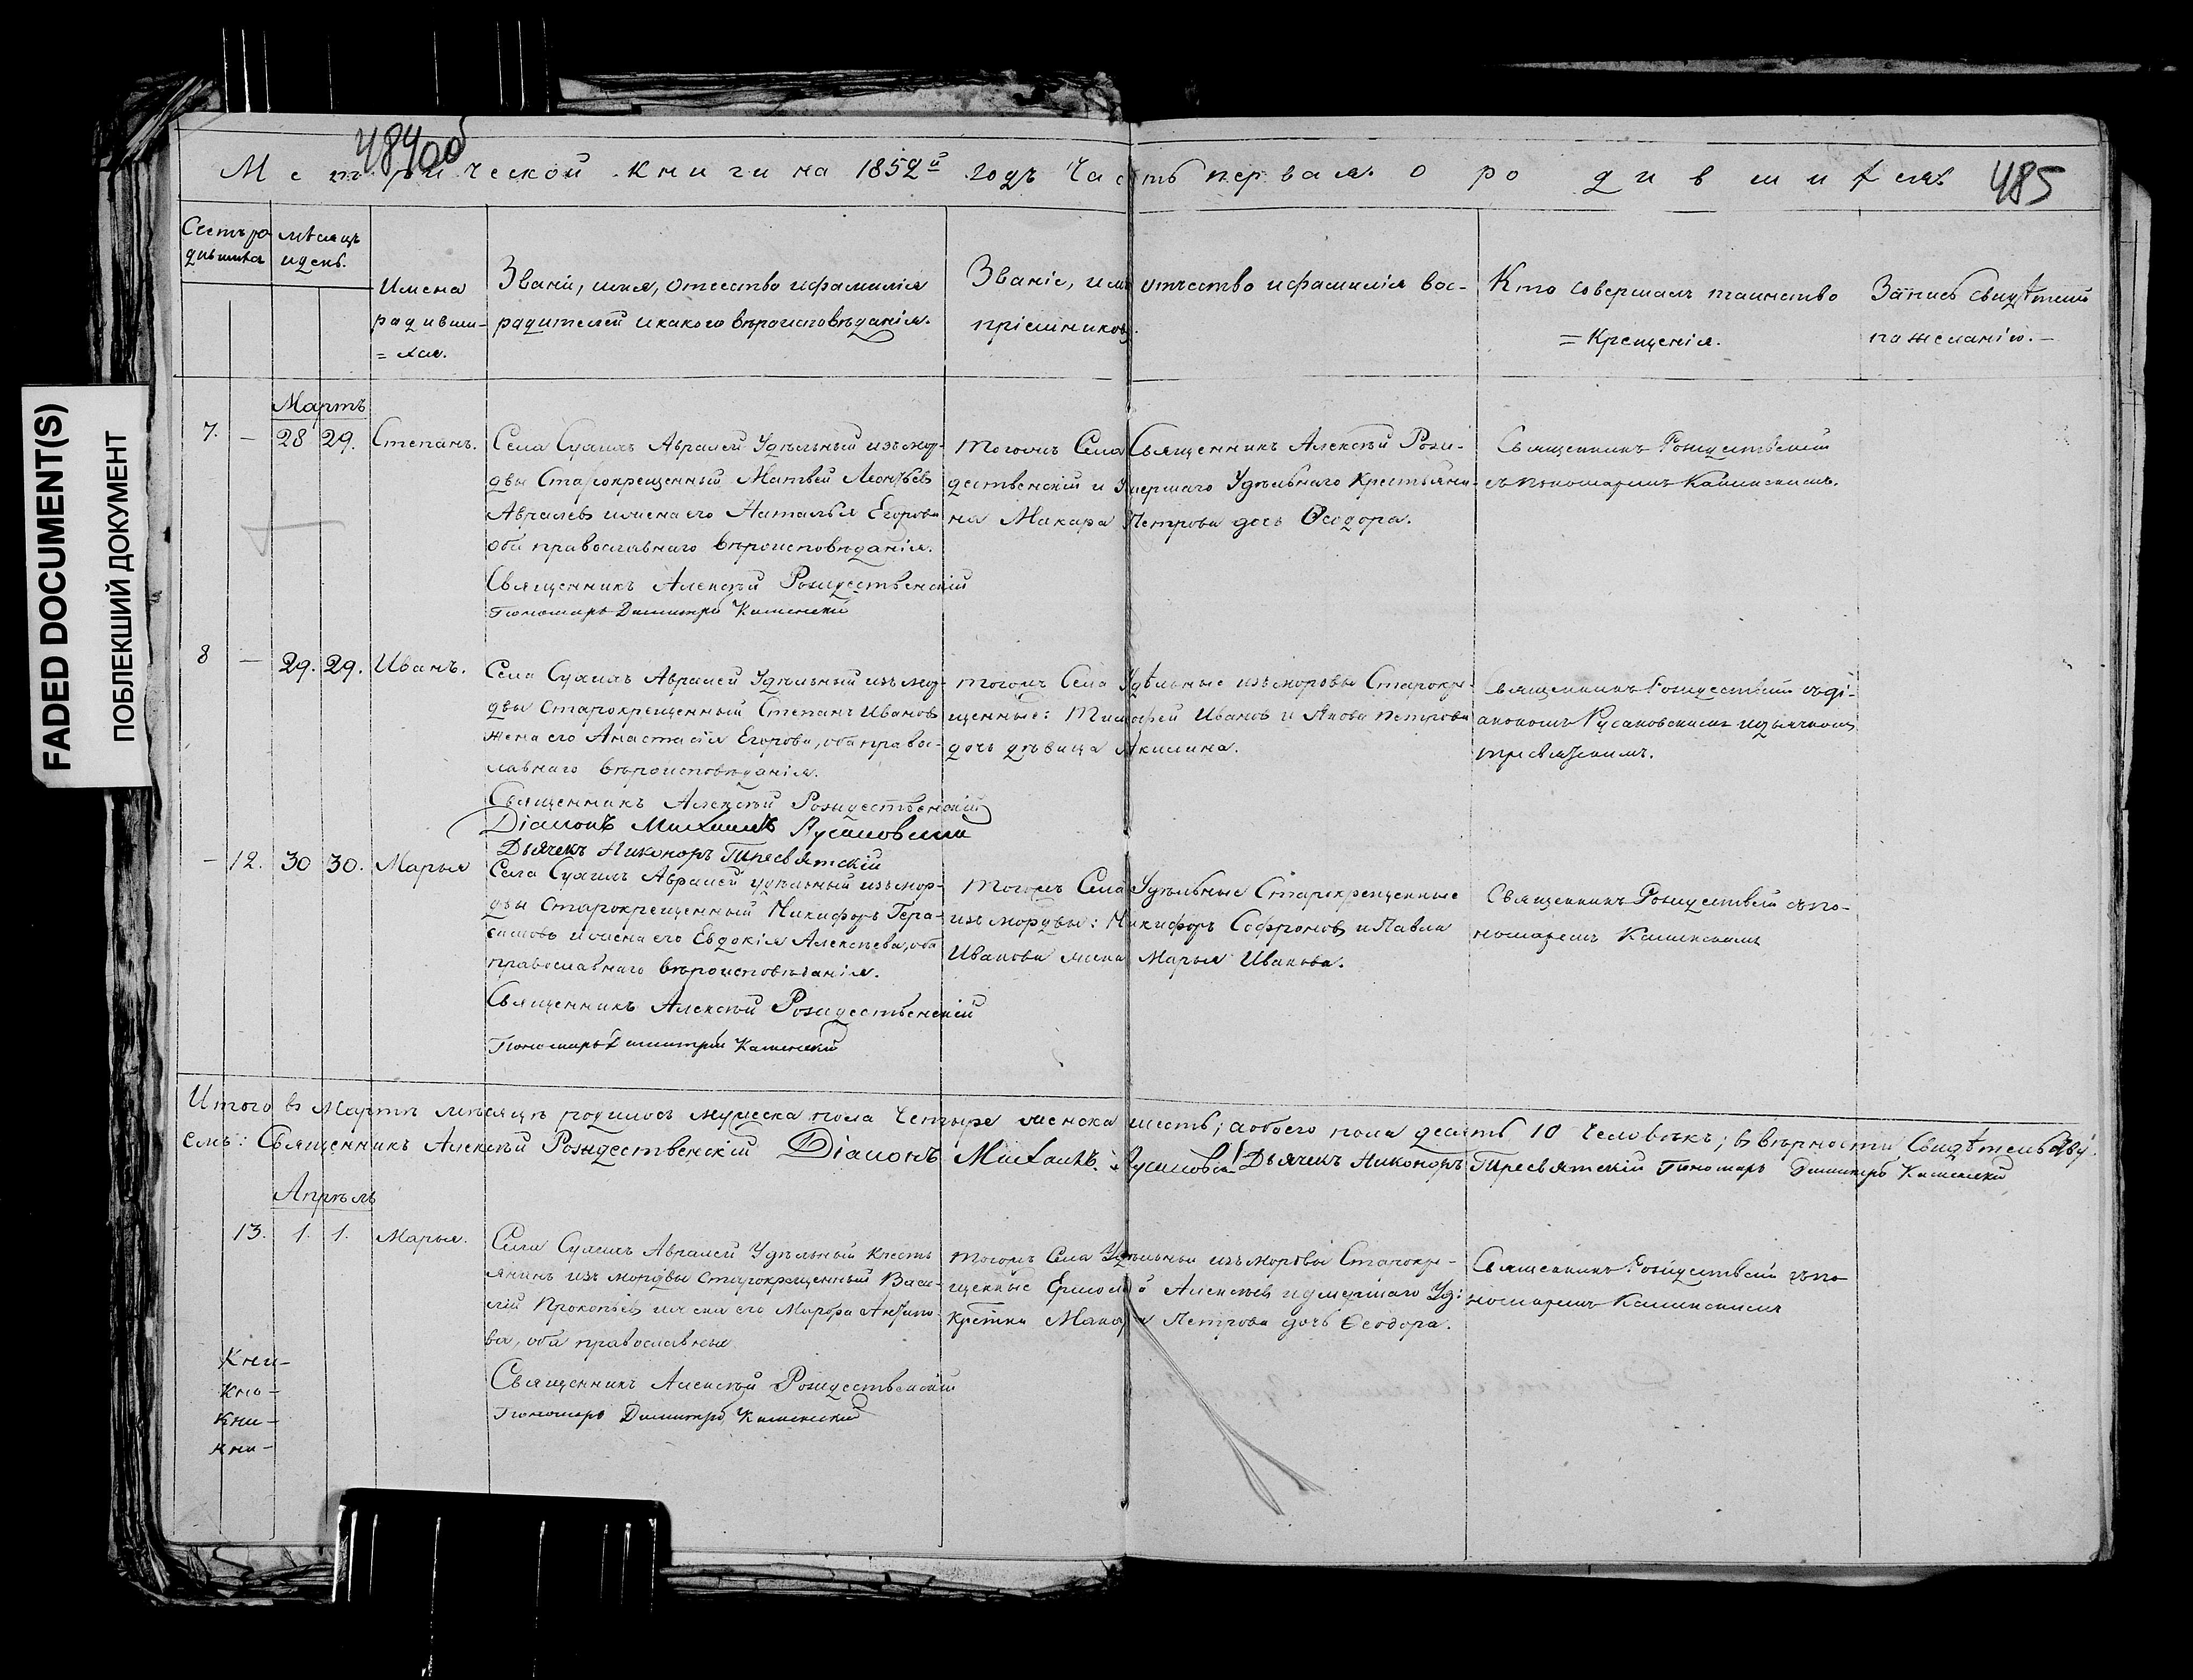 FADED DOCUMENT(S)
ПОБЛЕКШИЙ ДОКУМЕНТ
484об
485
Метрической книги на 1852й годъ Часть первая о родившихся.
Счетъ ро-
дившихся
мѣсяцъ
и день.
Имена
родивши-
=хся.
Званіе, имя, отчество и фамилія
родителей и какого вѣроисповѣданія.
Званіе, имя отчество и фамилія вос-
пріемниковъ.
Кто совершалъ таинство
=Крещенія.
Запись свидѣтелей
по желанію.-
Мартъ
7. — 28 29. Степанъ.
Села Авралей Удѣльный изъ мор-
двы Старокрещенный Матвей Леонтьевъ
Авралевъ и жена его Наталья Егорова
оба православнаго вѣроисповѣданія.
Священникъ Алексѣй Рождественскій
Пономарь Димитрій Каменскій
Тогожъ Села Священникъ Алексѣй Рож-
дественскій и Умершаго Удѣльнаго Крестьяни-
на Макара Петрова дочь Ѳеодора.
Священникъ Рождественскій
съ пономаремъ Каменскимъ.
8 — 29. 29. Иванъ.
Села Авралей Удѣльный изъ мор-
двы Старокрещенный Степанъ Ивановъ
жена его Анастасія Егорова, оба правос-
лавнаго вѣроисповѣданія.
Священникъ Алексѣй Рождественскій
Діаконъ Михаилъ Русановскій
Дьячекъ Никоноръ Пресвятскій
Тогожъ Села Удѣльные изъ мордвы Старокре-
щенные: Тимофей Ивановъ и Якова Петрова
дочь дѣвица Акилина.
Священникъ Рождественскій съ ді-
акономъ Русановскимъ и дьячкомъ
Пресвятскимъ.
— 12. 30 30. Марья
Села Авралей удѣльный изъ мор-
двы Старокрещенный Никифоръ Гера-
симовъ и жена его Евдокія Алексѣева, оба
православнаго вѣроисповѣданія.
Священникъ Алексѣй Рождественскій
Пономарь Димитрій Каменскій
Тогожъ Села Удѣльные Старокрещенные
изъ мордвы: Никифоръ Софроновъ и Павла
Иванова жена Марья Иванова.
Священникъ Рождественскій съ по-
номаремъ Каменскимъ
Итого въ Мартѣ мѣсяцѣ родилось мужеска пола Четыре женска шесть; а обоего пола десять 10 Человѣкъ; въ вѣрности Свидѣтельству-
емъ: Священникъ Алексѣй Рождественскій Діаконъ Михаилъ Русановскій Дьячекъ Никоноръ Пресвятскій Пономарь Димитрій Каменскій
Апрѣль
13. 1. 1. Марья.
Села Авралей Удѣльный Кресть
янинъ изъ мордвы Старокрещенный Васи-
лій Прокопьевъ и жена его Марѳа Антипо-
ва, оба православные
Священникъ Алексѣй Рождественскій
Пономарь Димитрій Каменскій
Тогожъ Села Удѣльные изъ мордвы Старокре-
щенные Ермолай Алексѣевъ и умершаго Уд:
Макара Петрова дочь Ѳеодора.
Священникъ Рождественскій съ по
номаремъ Каменскимъ
Кни-
Кни-
Кни-
Кни-